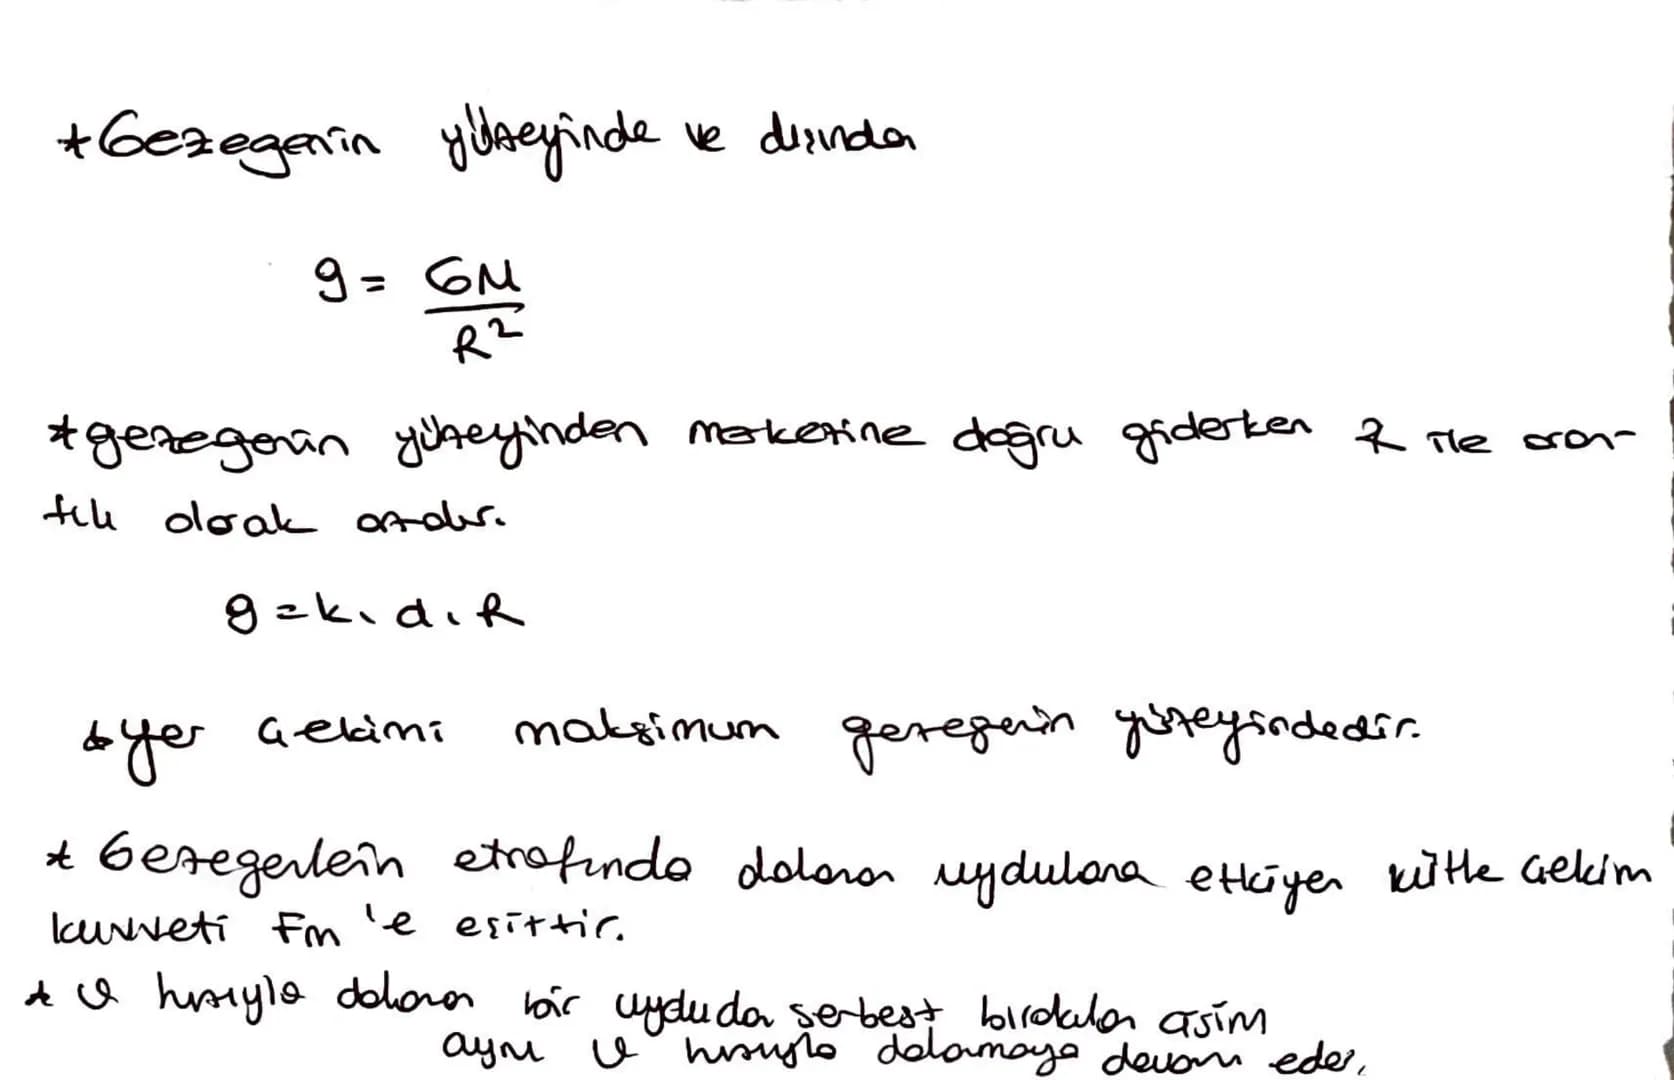 * Gezegenin yüzeyinde ve dışında
g = GM
R²
* gezegenin yüzeyinden merkezine doğru giderken R ile oran-
tılı olarak azalır.
g = k . d . R
* yer çekimi maksimum gezegenin yüzeyindedir.
* Gezegenlerin etrafında dolanan uydulara etkiyen kütle çekim
kuvveti Fm 'e eşittir.
* v hızıyla dolanan bir uyduda serbest bırakılan cisim
aynı v hızıyla dolanmaya devam eder.